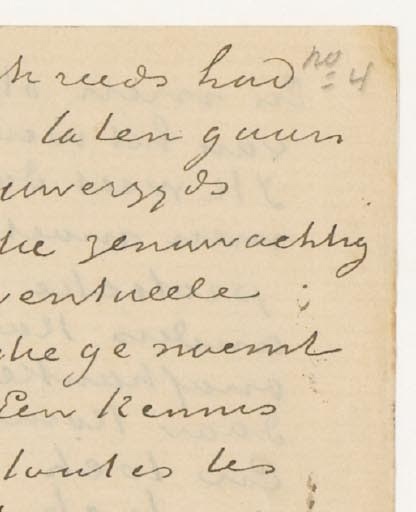 k reeds had no 4
laten gaan
uwerzyds
ke zenuwachtig
ventueele
che genoemt
Een Kennis